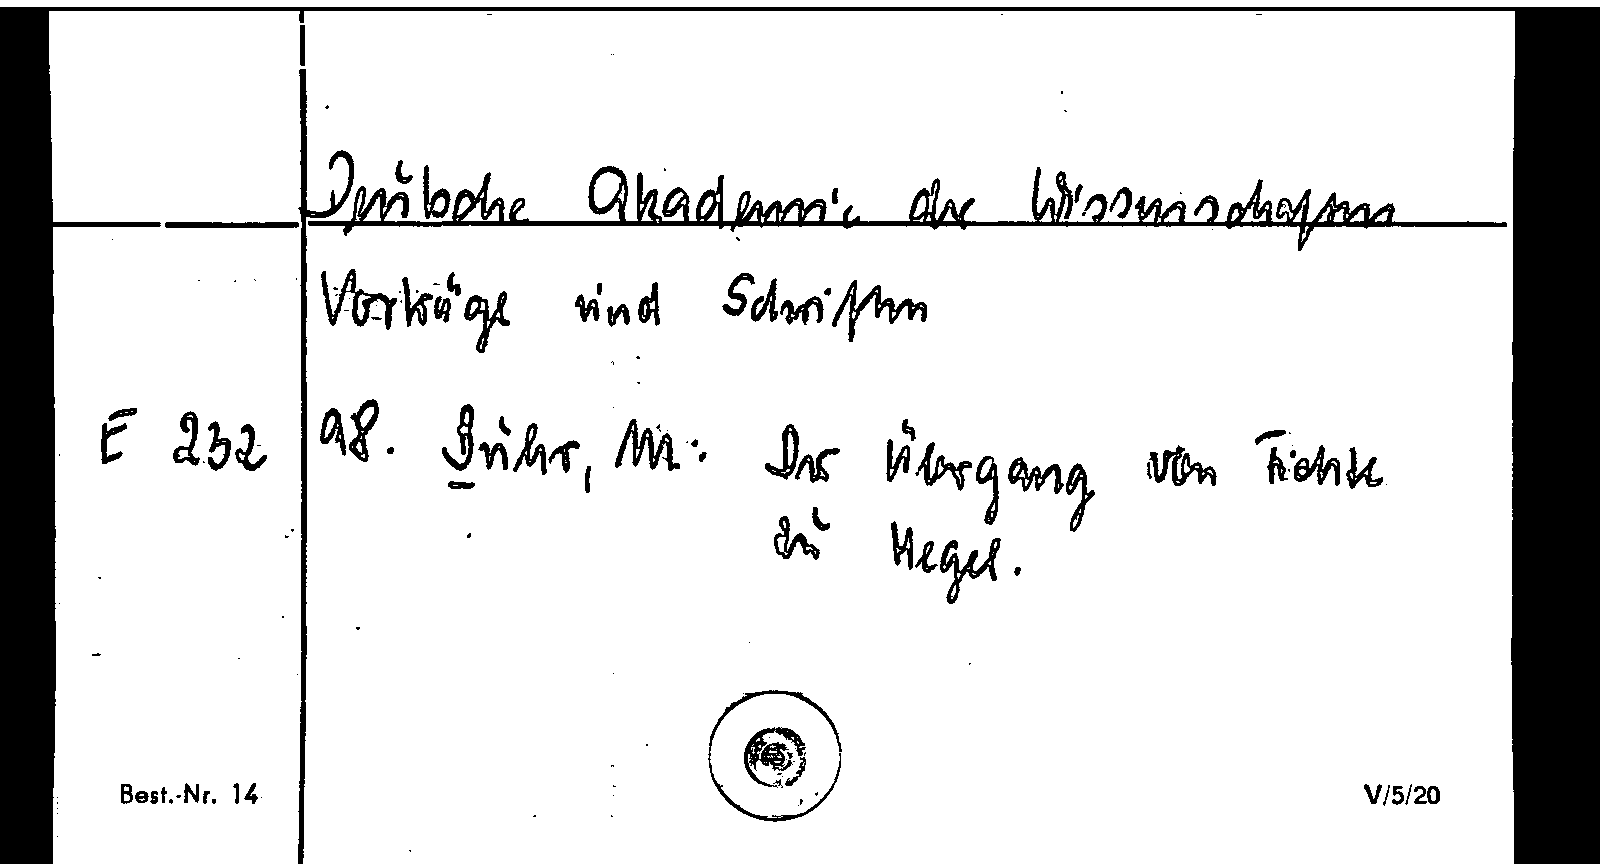 Deutsche Akademie der Wissenschaften
Vorträge und Schriften
E 232 98. Buhr, M.: Der Übergang von Fichte
zu Hegel.
Best.-Nr. 14 V/5/20